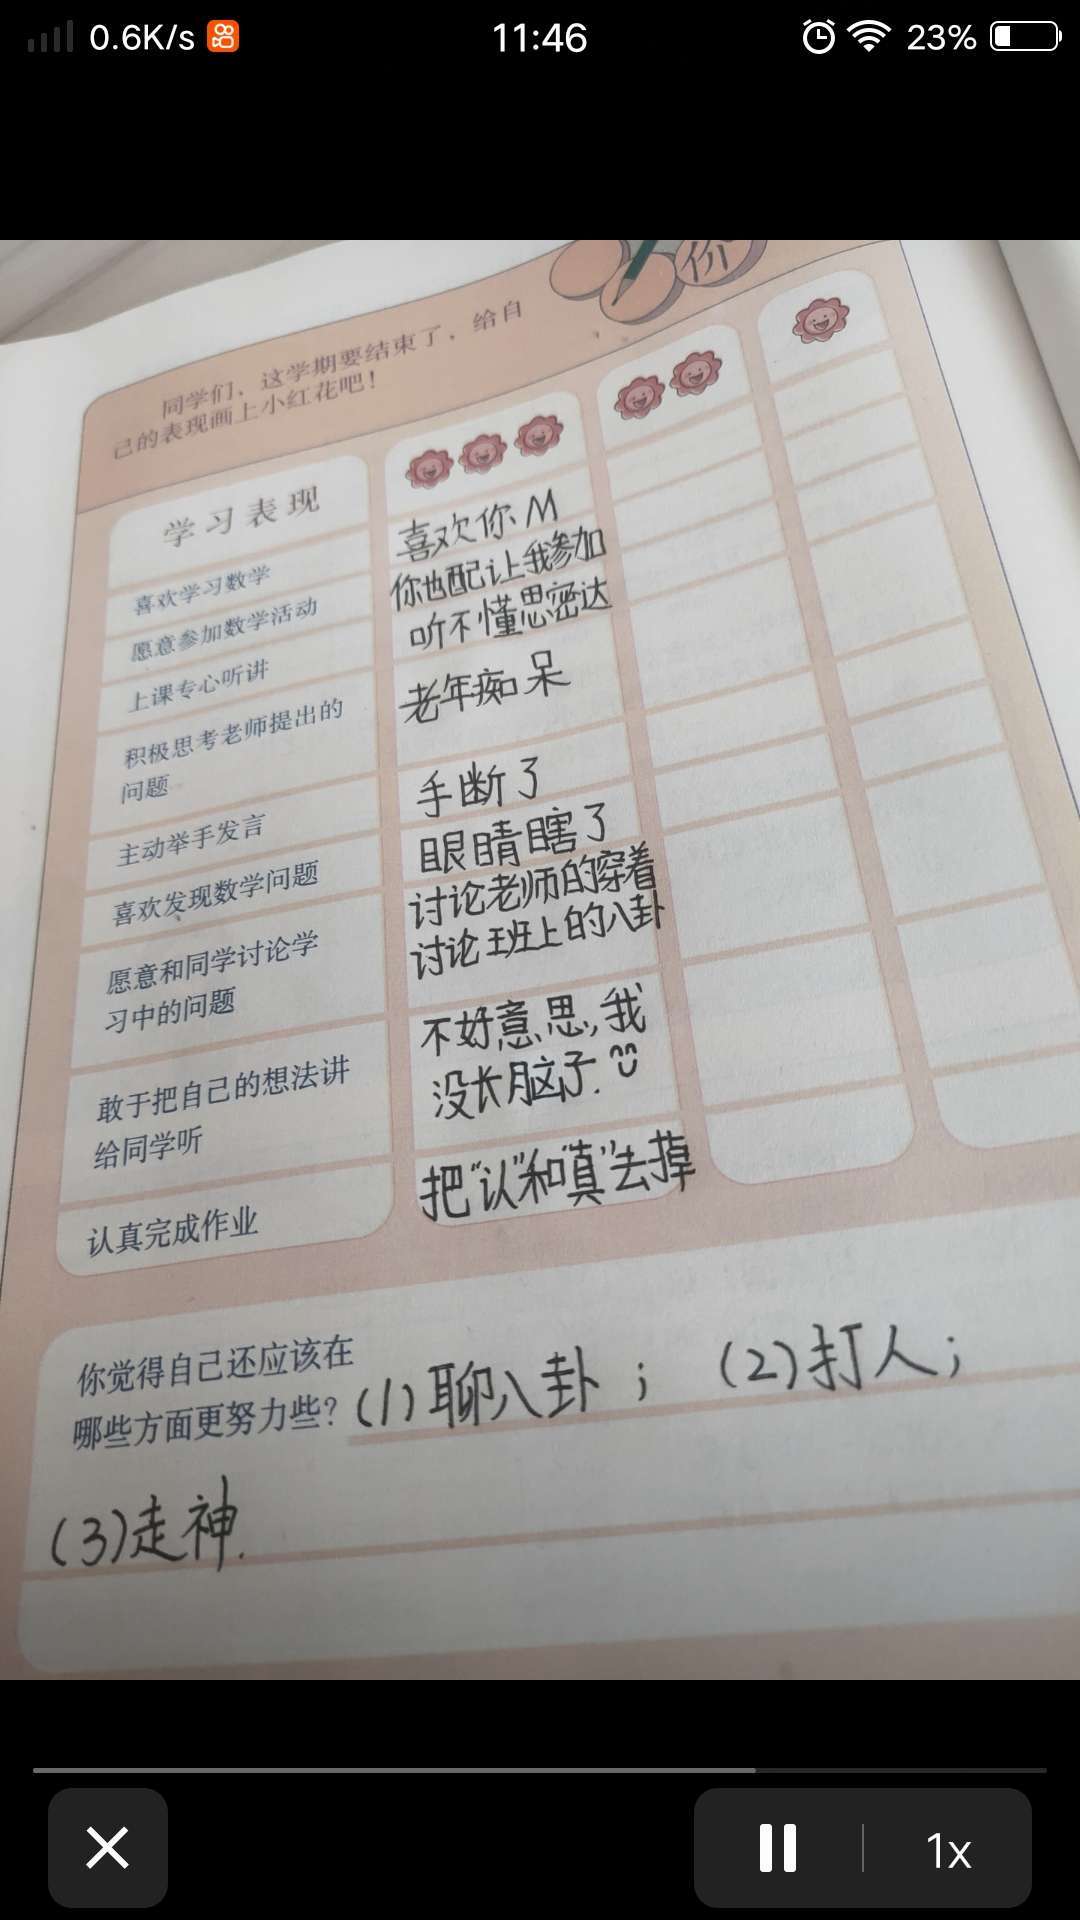 0.6K/s
11:46
23%
价
同学们，这学期要结束了，给自
己的表现画上小红花吧！
学习表现
喜欢学习数学
喜欢你M
愿意参加数学活动
你也配让我参加
上课专心听讲
听不懂思密达
积极思考老师提出的
问题
老年痴呆
主动举手发言
手断了
喜欢发现数学问题
眼睛瞎了
愿意和同学讨论学
习中的问题
讨论老师的穿着
讨论班上的八卦
敢于把自己的想法讲
给同学听
不好意思,我
没长脑子.
认真完成作业
把"认"和"真"去掉
你觉得自己还应该在
哪些方面更努力些?
(1)聊八卦； (2)打人；
(3)走神.
1x